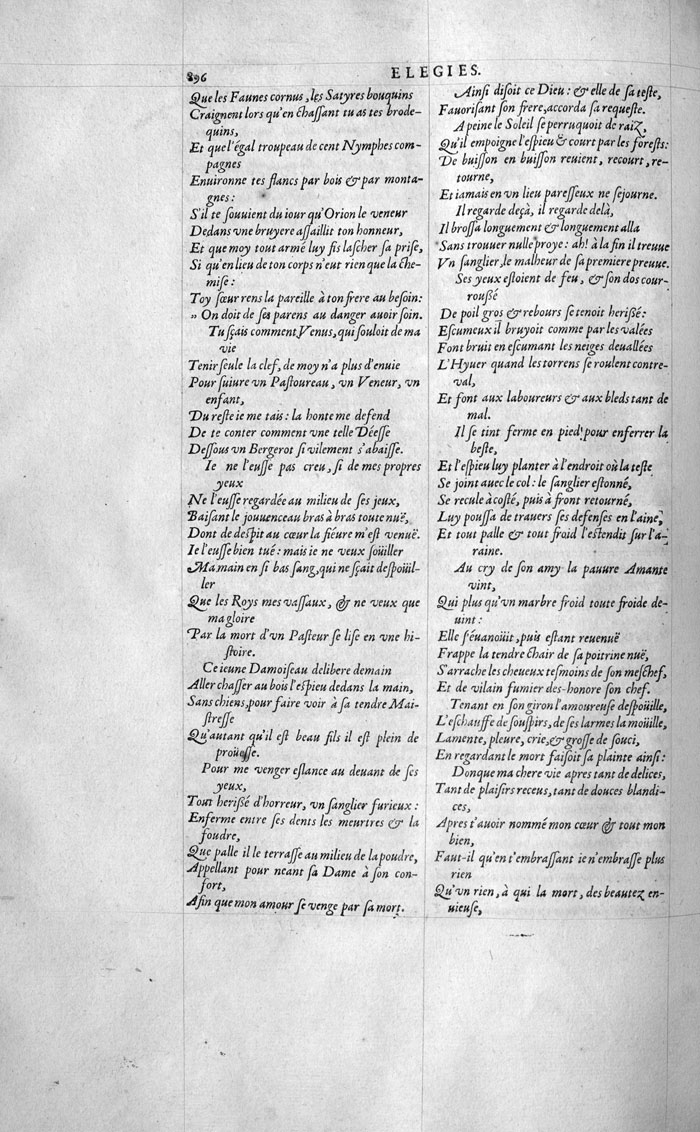 896
ELEGIES.
Que les Faunes cornus, les Satyres bouquins
Craignent lors qu'en chassant tu as tes brode-
quins,
Et que l'égal troupeau de cent Nymphes com-
pagnes
Enuironne tes flancs par bois & par monta-
gnes:
S'il te souuient du iour qu'Orion le veneur
Dedans vne bruyere assaillit ton honneur,
Et que moy tout armé luy fis lascher sa prise,
Si qu'en lieu de ton corps n'eut rien que la che-
mise:
Toy sœur rens la pareille à ton frere au besoin:
„ On doit de ses parens au danger auoir soin.
Tu sçais comment Venus, qui souloit de ma
vie
Tenir seule la clef, de moy n'a plus d'enuie
Pour suiure vn Pastoureau, vn Veneur, vn
enfant,
Du reste ie me tais: la honte me defend
De te conter comment vne telle Déesse
Dessous vn Bergerot si vilement s'abaisse.
Ie ne l'eusse pas creu, si de mes propres
yeux
Ne l'eusse regardée au milieu de ses jeux,
Baisant le jouuenceau bras à bras toute nuë,
Dont de despit au cœur la fiéure m'est venuë.
Ie l'eusse bien tué: mais ie ne veux soüiller
Ma main en si bas sang, qui ne sçait despoüil-
ler
Que les Roys mes vassaux, & ne veux que
ma gloire
Par la mort d'vn Pasteur se lise en vne hi-
stoire.
Ce ieune Damoiseau delibere demain
Aller chasser au bois l'espieu dedans la main,
Sans chiens, pour faire voir à sa tendre Mai-
stresse
Qu'autant qu'il est beau fils il est plein de
proüesse.
Pour me venger eslance au deuant de ses
yeux,
Tout herißé d'horreur, vn sanglier furieux:
Enferme entre ses dents les meurtres & la
foudre,
Que palle il le terrasse au milieu de la poudre,
Appellant pour neant sa Dame à son con-
fort,
Afin que mon amour se venge par sa mort.
Ainsi disoit ce Dieu: & elle de sa teste,
Fauorisant son frere, accorda sa requeste.
A peine le Soleil se perruquoit de raiz,
Qu'il empoigne l'espieu & court par les forests:
De buisson en buisson reuient, recourt, re-
tourne,
Et iamais en vn lieu paresseux ne sejourne.
Il regarde deçà, il regarde delà,
Il brossa longuement & longuement alla
Sans trouuer nulle proye: ah! à la fin il treuue
Vn sanglier, le malheur de sa premiere preuue.
Ses yeux estoient de feu, & son dos cour-
roußé
De poil gros & rebours se tenoit herißé:
Escumeux il bruyoit comme par les valées
Font bruit en escumant les neiges deuallées
L'Hyuer quand les torrens se roulent contre-
val,
Et font aux laboureurs & aux bleds tant de
mal.
Il se tint ferme en pied pour enferrer la
beste,
Et l'espieu luy planter à l'endroit où la teste
Se joint auec le col: le sanglier estonné,
Se recule à costé, puis à front retourné,
Luy poussa de trauers ses defenses en l'aine,
Et tout palle & tout froid l'estendit sur l'a-
raine.
Au cry de son amy la pauure Amante
vint,
Qui plus qu'vn marbre froid toute froide de-
uint:
Elle s'éuanoüit, puis estant reuenuë
Frappe la tendre chair de sa poitrine nuë,
S'arrache les cheueux tesmoins de son meschef,
Et de vilain fumier des-honore son chef.
Tenant en son giron l'amoureuse despoüille,
L'eschauffe de souspirs, de ses larmes la moüille,
Lamente, pleure, crie, & grosse de souci,
En regardant le mort faisoit sa plainte ainsi:
Donque ma chere vie apres tant de delices,
Tant de plaisirs receus, tant de douces blandi-
ces,
Apres t'auoir nommé mon cœur & tout mon
bien,
Faut-il qu'en t'embrassant ie n'embrasse plus
rien
Qu'vn rien, à qui la mort, des beautez en-
uieuse,